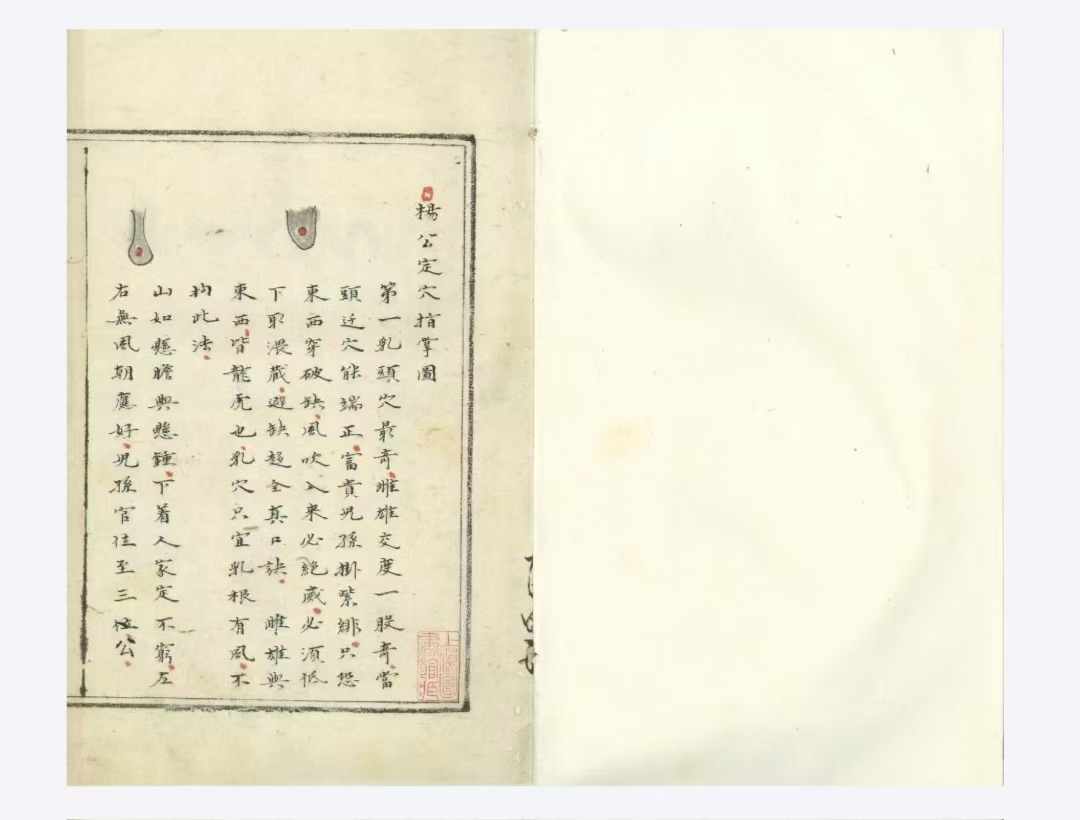 楊公定穴指掌圖
第一乳頭穴最奇雌雄交度一般奇當
頭迁穴能端正富貴兒孫掛紫緋只恐
東西穿破缺風吹入來必絕滅必須低
下取藏避缺超全真口訣 雌雄與
東西皆龍虎也乳穴只宜乳根有風不
拘此法
山如懸膽與懸鍾下着人家定不窮左
右無風朝應好兒孫官位至三位公